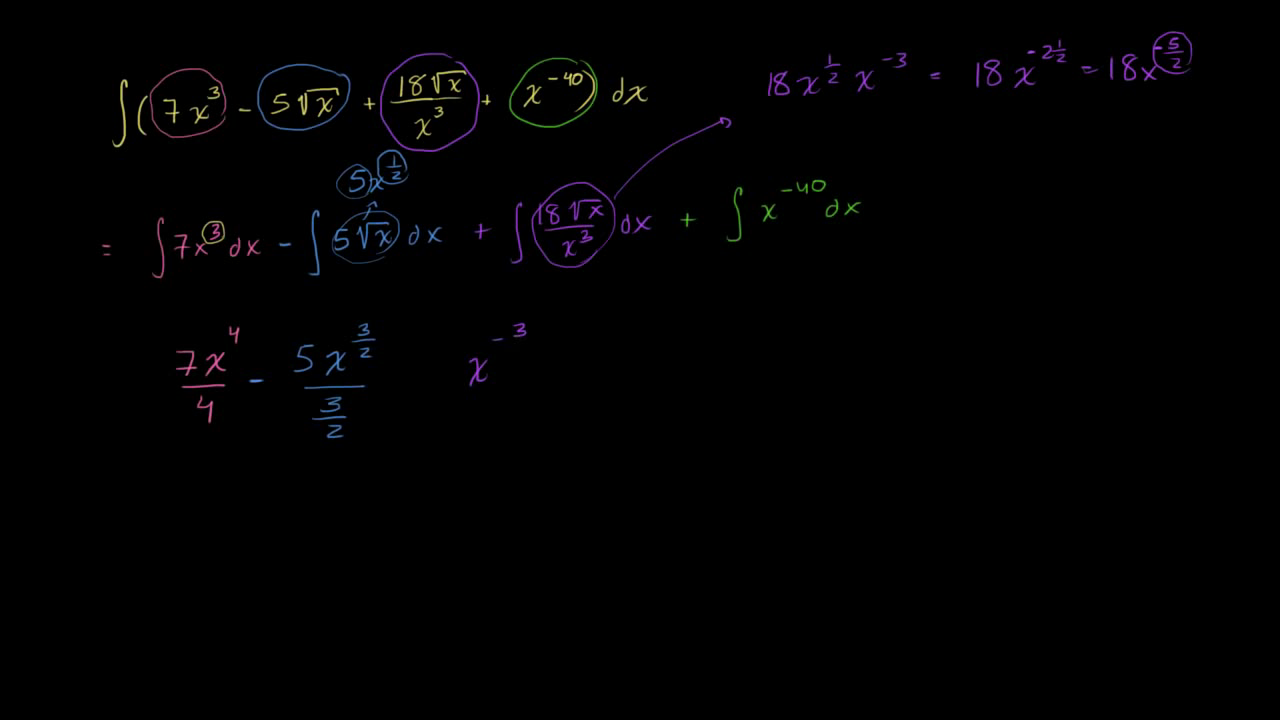 ∫(7x³ - 5√x + 18√x/x³ + x⁻⁴⁰) dx
18x^(1/2) x⁻³ = 18x^(-2 1/2) = 18x^(-5/2)
5x^(1/2)
= ∫7x³dx - ∫5√x dx + ∫18√x/x³ dx + ∫x⁻⁴⁰dx
7x⁴/4 - 5x^(3/2)/(3/2) x^(-3